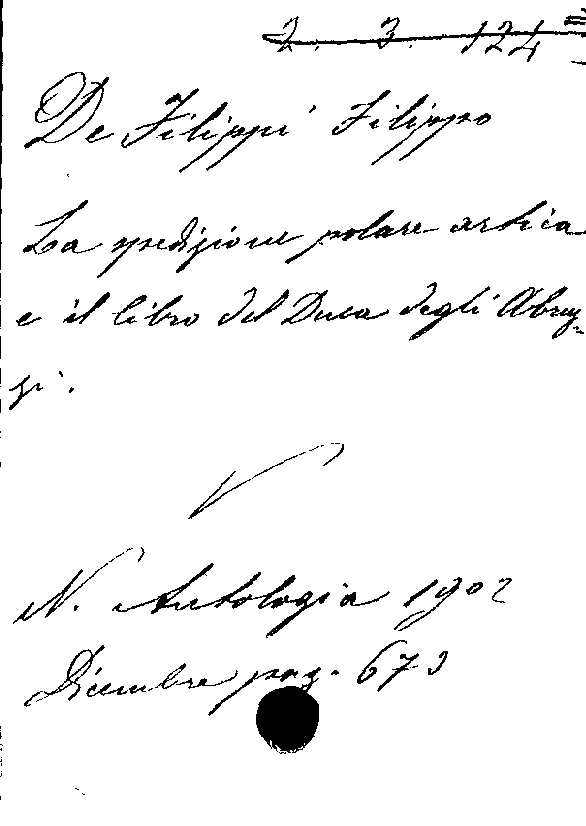 2. 3. 124
De Filippi Filippo
La spedizione polare artica
e il libro del Duca degli Abruz-
zi.
N. Antologia 1902
Dicembre pag. 673